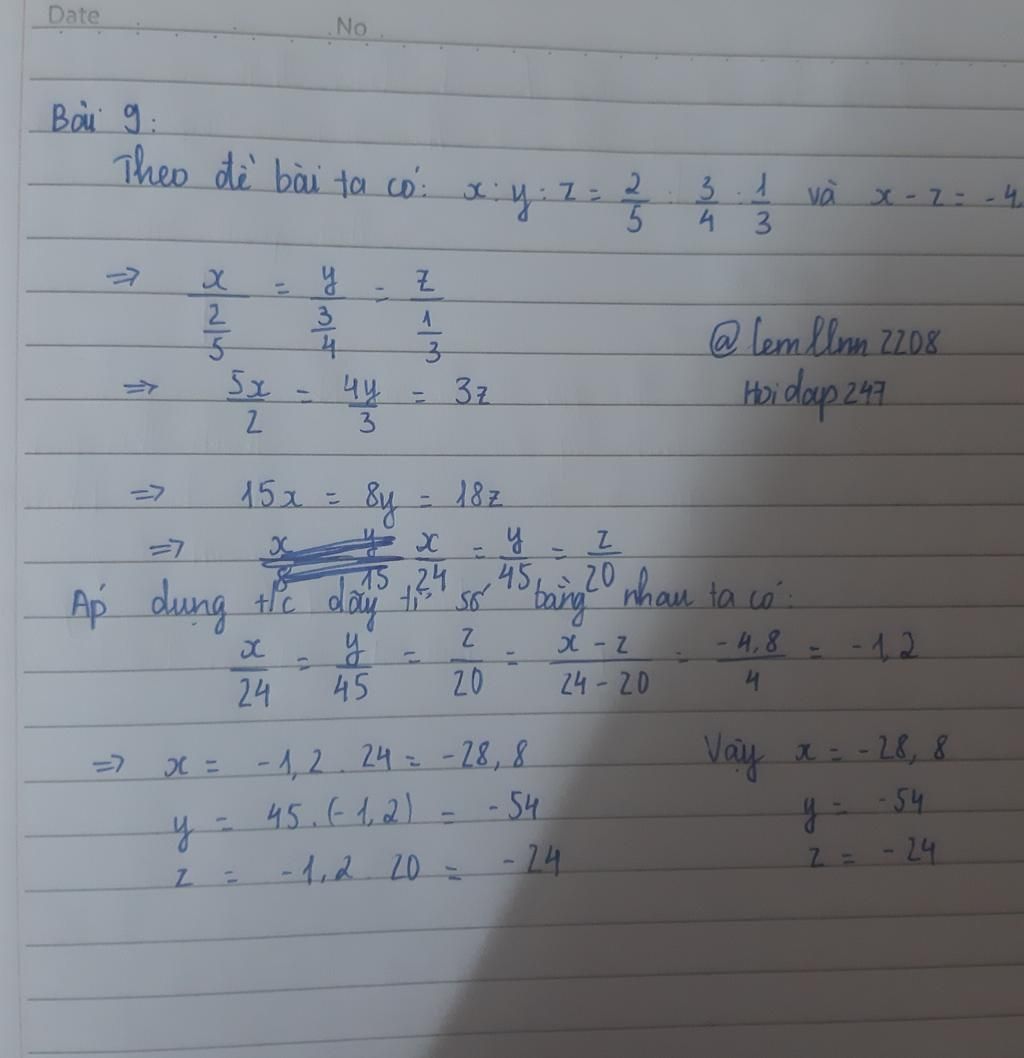 Date No
Bài 9:
Theo đề bài ta có: x : y : z = 2/5 : 3/4 : 1/3 và x - z = -4
=> x/(2/5) = y/(3/4) = z/(1/3)
@lemllnn2208
=> 5x/2 = 4y/3 = 3z
Hoidap247
=> 15x = 8y = 18z
=> x/24 = y/45 = z/20
Áp dụng t/c dãy tỉ số bằng nhau ta có:
x/24 = y/45 = z/20 = (x - z)/(24 - 20) = -4,8/4 = -1,2
=> x = -1,2 . 24 = -28,8 Vậy x = -28,8
y = 45.(-1,2) = -54 y = -54
z = -1,2 20 = -24 z = -24